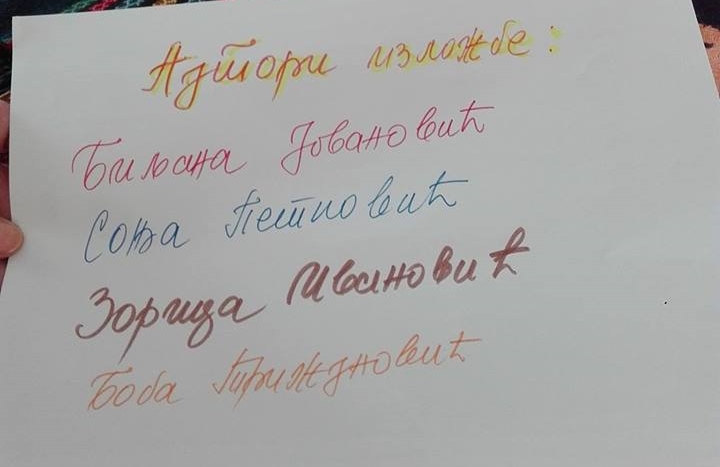 Аутори изложбе:
Биљана Јовановић
Соња Петковић
Зорица Ивановић
Боба